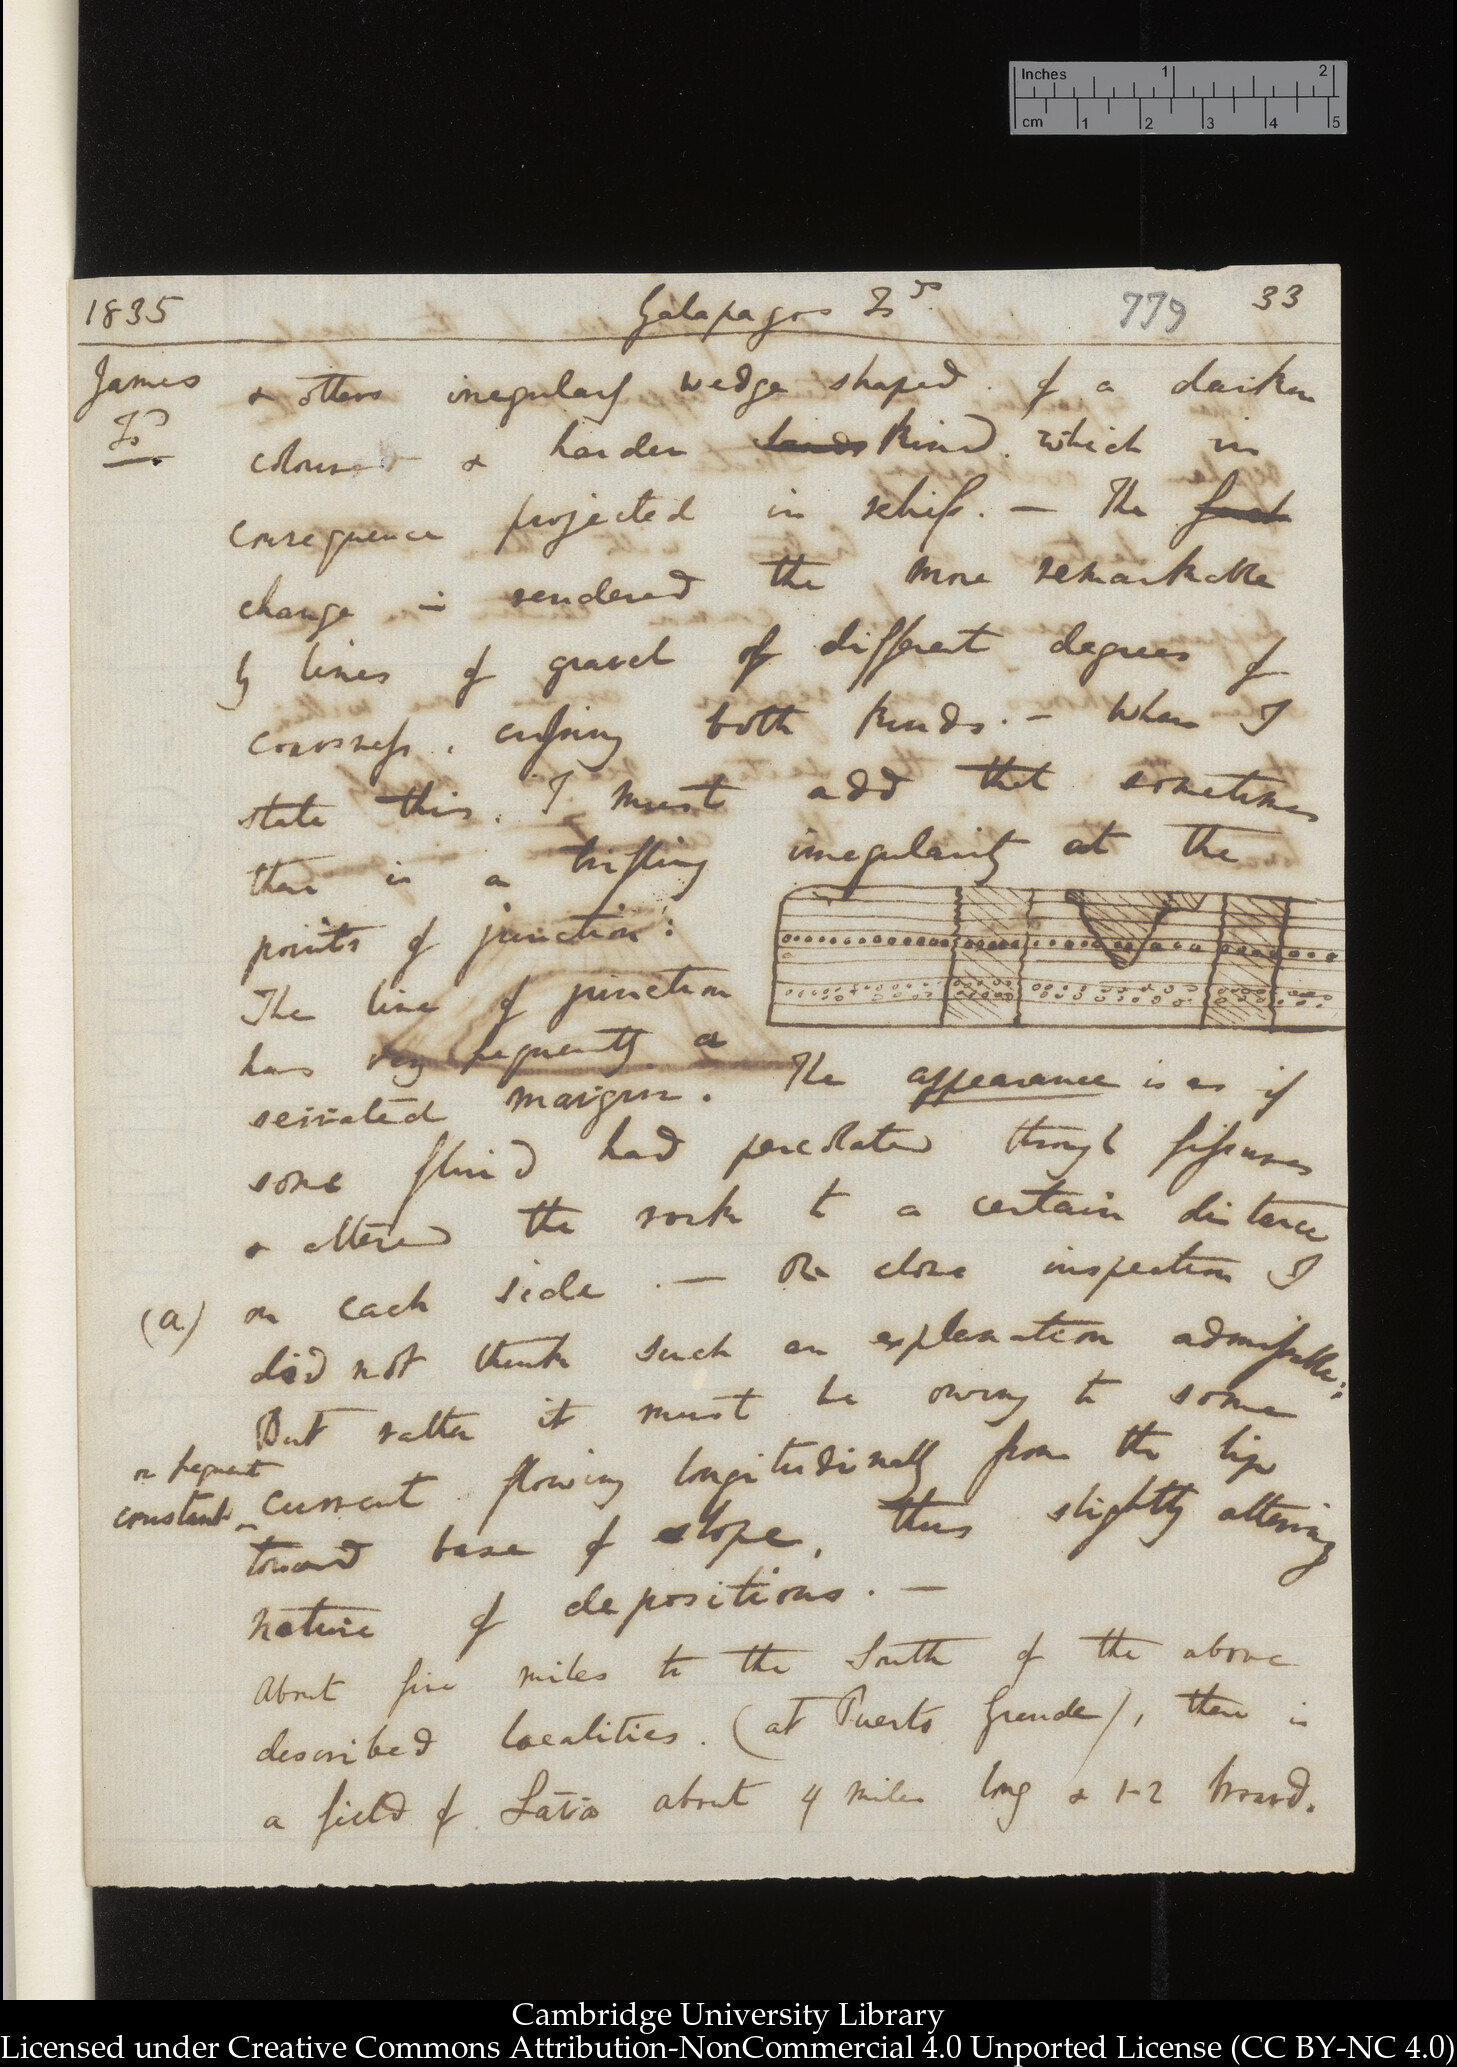 Inches 1 2
cm 1 2 3 4 5
1835 Galapagos Is 779 33
James & others irregularly wedge shaped. of a darker
Is coloured & harder bands kind. which in
consequence projected in relief. — The fact
change is rendered the more remarkable
by lines of gravel of different degrees of
coarsness, crossing both kinds. — When I
state this, I must add that sometimes
there is a trifling irregularity at the
points of junction:
The line of junction
has very frequently a
serrated margin. The appearance is as if
some fluid had percolated through fissures
& altered the rock to a certain distance
(a) on each side. — On close inspection I
did not think such an explanation admissible;
But rather it must be owing to some
or frequent
constant current flowing longitudinally from the lip
toward base of slope, thus slightly altering
nature of depositions. —
About five miles to the South of the above
described localities. (at Puerto Grande), there is
a field of Lava about 4 miles long & 1-2 broard.
Cambridge University Library
Licensed under Creative Commons Attribution-NonCommercial 4.0 Unported License (CC BY-NC 4.0)